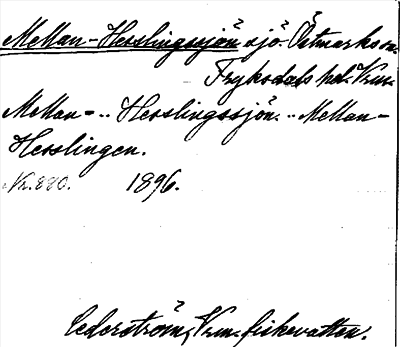 Mellan-Hesslingssjön sjö. Östmarks sn.
Fryksdals hd. Vrm.
Mellan- .. Hesslingssjön. .. Mellan-
Hesslingen.
Nr. 880. 1896.
Cederström, Vrm. fiskevatten.